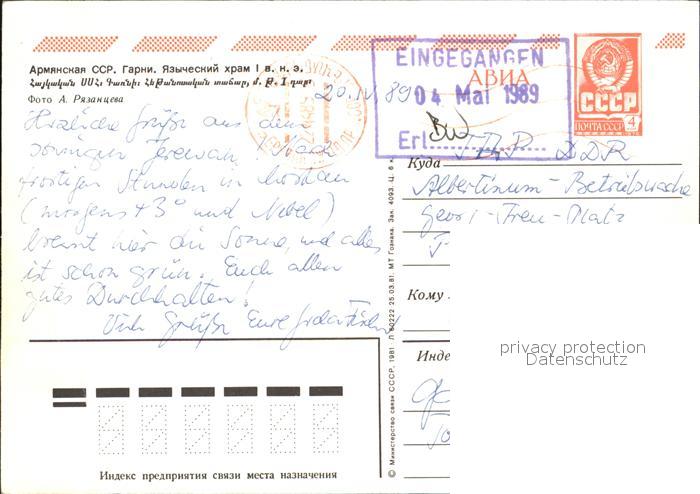 Армянская ССР. Гарни. Языческий храм I в. н. э.
Հայկական ՍՍՀ. Գառնի։ Հեթանոսական տաճար, մ. թ. I դար
Фото А. Рязанцева
20. IV. 89
EINGEGANGEN
04 Mai 1989
Erl.
АВИА
СССР
ПОЧТА СССР
4
Herzliche Grüße aus dem
sonnigen Jerewan! Nach
frostigen Stunden in Moskau
(morgens +3° und Nebel)
brennt hier die Sonne, und alles
ist schon grün. Euch allen
gutes Durchhalten!
Viele Grüße Eure
Куда
DDR
Albertinum - Betriebswache
Georg-Treu-Platz
Кому
Инде
privacy protection
Datenschutz
© Министерство связи СССР, 1981. 25.03.81. МТ Гознака. Зак. 4093. Ц. 6 к.
Индекс предприятия связи места назначения